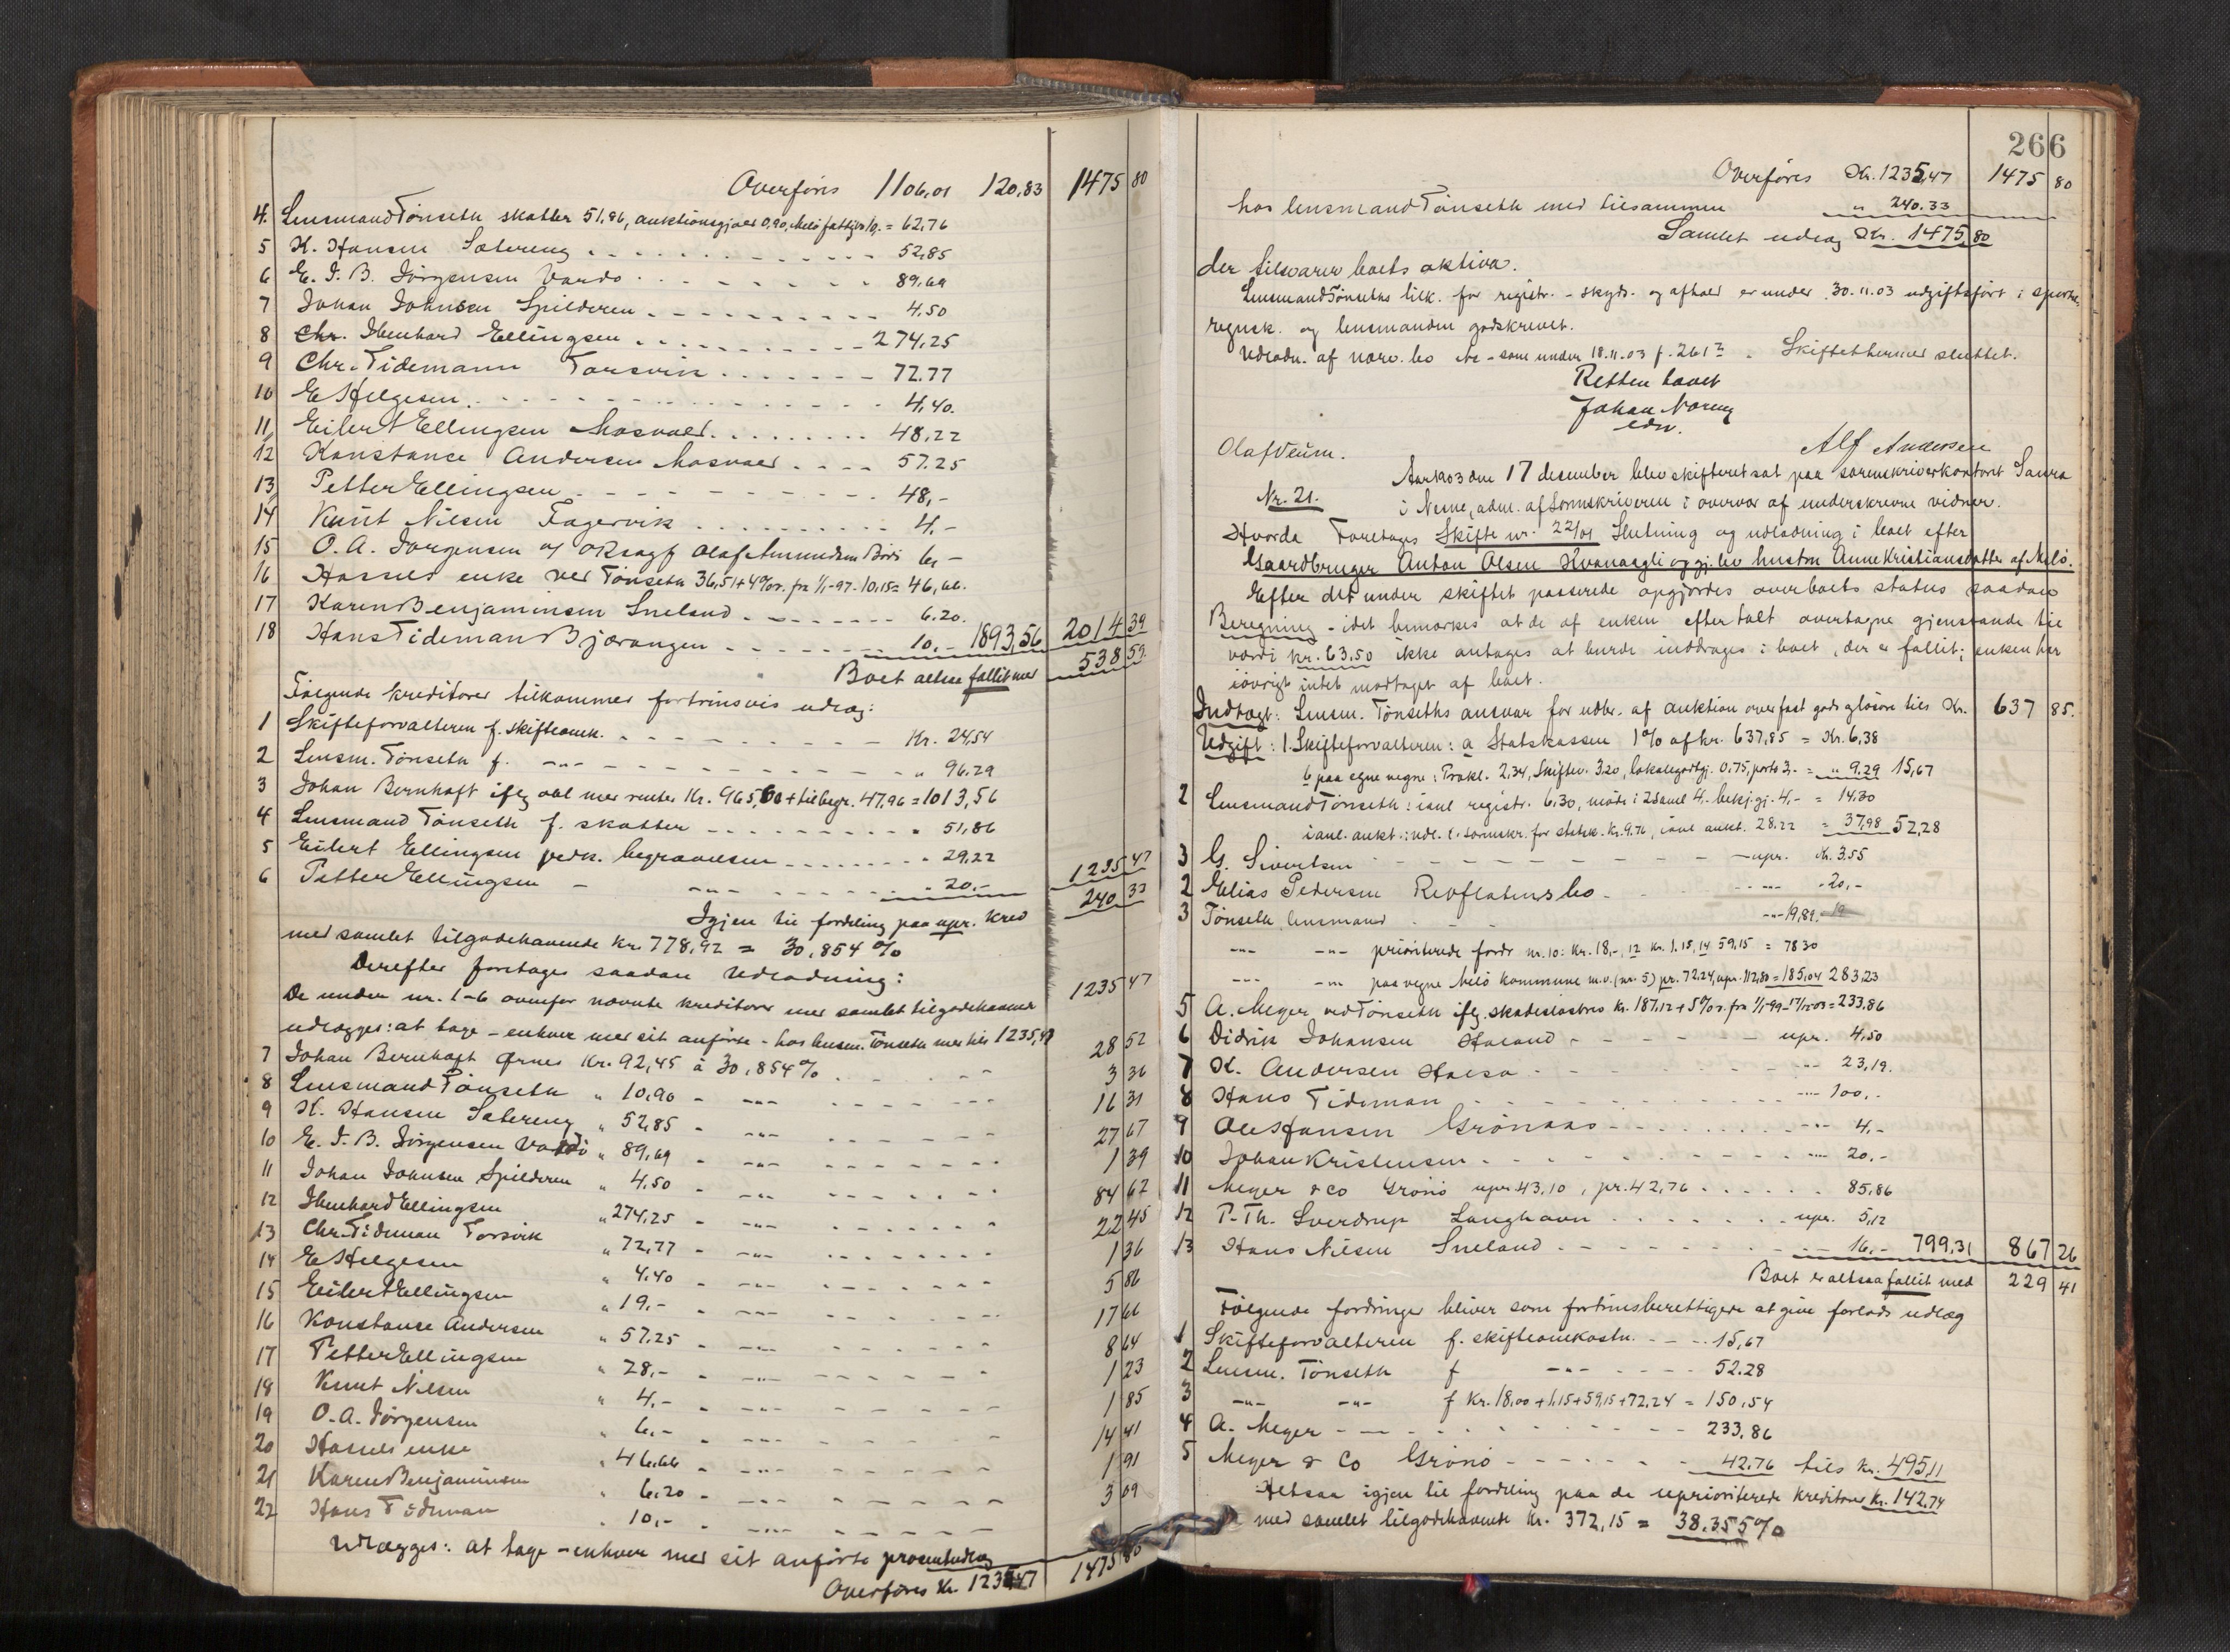 Overføres 1106,01 120,83 1475 80
4. Lensmand Tönseth skatter 51,86, auktionsgjæld 0,90, Melö fattigv. 10,- = 62,76
5 K. Hansen Sætereng 52,85
6 E. J. B. Jörgensen Vardö 89,69
7 Johan Johnsen Spilderen 4,50
8 Chr. Ibenhard Ellingsen 274,25
9 Chr. Tidemann Torsvik 72.77
10 E Helgesen 4,40.
11 Eilert Ellingsen Mosvold 48,22
12 Konstance Andersen Mosvold 57.25
13 Petter Ellingsen 48,-
14 Knut Nilsen Fagervik 4,-
15 O. A. Jörgensen v/ oRsagf Olaf Amundsen Bodö 6,-
16 Hassels enke ved Tönseth 36,51+4% r. fra 1/1-97. 10,15= 46,66.
17 Karen Benjaminsen Sneland 6.20.
18 Hans Tideman Bjærangen 10,- 1893,56 2014 39
Boet altsaa fallit med 538 59.
Følgende kreditorer tilkommer fortrinsvis udlæg:
1 Skifteforvalteren f. skifteomk. Kr. 24,54
2 Lensm. Tönseth f. -"- " 96.29
3 Johan Bernhoft iflg obl med renter Kr. 965,60+tilbegr. 47,96 = 1013,56
4 Lensmand Tönseth f. skatter " 51,86
5 Eilert Ellingsen predk. begravelsen " 29,22
6 Petter Ellingsen - -"- " 20,- 1235 47
Igjen til fordeling paa upr. kred 240 33
med samlet tilgodehavende Kr. 778,92 = 30,854 %
Derefter foretages saadan Udlodning:
De under nr. 1-6 ovenfor nævnte kreditorer med samlet tilgodehavner
udlægges: at tage - enhver med sit anförte - hos lensm. Tönseth med tils 1235,47 1235 47
7 Johan Bernhoft Ørnes Kr. 92,45 á 30,854% 28 52
8 Lensmand Tönseth " 10,90 - -"- 3 36
9 K. Hansen Sætereng " 52,85 - -"- 16 31
10 E. J. B. Jörgensen Vardö " 89,69 - -"- 27 67
11 Johan Johnsen Spilderen " 4,50 - -"- 1 39
12 Ibenhard Ellingsen " 274,25 - -"- 84 62
13 Chr. Tideman Torsvik " 72,77 - -"- 22 45
14 E Helgesen " 4,40 - -"- 1 36
15 Eilert Ellingsen " 19,- - -"- 5 86
16 Konstance Andersen " 57,25 - -"- 17 66
17 Petter Ellingsen " 28,- - -"- 8 64
18 Knut Nilsen " 4,- - -"- 1 23
19 O. A. Jörgensen " 6,- - -"- 1 85
20 Hassels enke " 46,66 - -"- 14 41
21 Karen Benjaminsen " 6.20 - -"- 1 91
22 Hans Tideman " 10,- - -"- 3 09
Udlægges: at tage - enhver med sit anförte prosentudlæg
Overføres Kr. 1235,47 1475 80
266
Overføres Kr. 1235,47 1475 80
hos lensmand Tönseth med tilsammen " 240.33
Samlet udlæg Kr. 1475,80
der tilsvarer boets aktiva.
Lensmand Tönseths tilk. for registr. - skyds. og afhold er under 30.11.03 udgiftsført i sportel-
regnsk. og lensmanden godskrevet.
Udlodn. af nærv. bo som under 18.11.03 f. 261 Skiftet hermed sluttet.
Retten hævet
Johan Noreng
edv.
Olaf Veum. Alf Andersen
Aar 1903 den 17 desember blev skifteret sat paa sorenskriverkontoret Sanna
Nr. 21. i Nesne, adm. af Sorenskriveren i overvær af underskrevne vidner.
Hvorda Foretages Skifte nr. 22/01 Slutning og udlodning i boet efter
Gaardbruger Anton Olsen Kvanaagli og gj.lev hustru Anne Kristiansdatter af Melö.
Efter det under skiftet passerede opgjördes over boets status saadan
Beregning - idet bemærkes at de af enken eftertalt overtagne gjenstande til
værdi kr. 63.50 ikke antages at burde inddrages i boet, der er fallit; enken har
iøvrigt intet modtaget af boet.
Indtægt: Lensm. Tönseths ansvar for udbr. af auktion over fast gods & løsøre tils Kr. 637 85.
Udgift: 1. Skifteforvalteren: a Statskassen 1% af kr. 637,85 = Kr. 6,38
b paa egne vegne: Prokl. 2,34, Skiftev. 3,20, lokalegodtgj. 0,75, porto 3,- = " 9.29 15,67
2 Lensmand Tönseth: i anl registr. 6,30, möde i 2 saml 4,- bekj.gj. 4,- = 14,30
i anl. aukt.: udl. t. sorenskr. for statsk. Kr. 9.76, i anl aukt. 28.22 = 37,98 52,28
3 G. Sivertsen - upr. Kr. 3.55
2 Elias Pedersen Revflatens bo -"- 20,-
3 Tönseth, lensmand -"- 19,89.
-"- -"- prioriterede fordr nr. 10: Kr. 18,-, 12 Kr. 1.15, 14 59,15 = 78 30
-"- -"- paa vegne Melö kommune m.v. (nr. 5) pr. 72.24, upr. 112,80 = 185,04 283,23
5 A. Meyer ved Tönseth iflg. skadeslösbrev Kr. 187,12+5% r. fra 1/1-99-17/12-03 = 233,86
6 Didrik Johansen Haland upr. 4,50
7 K. Andersen Halsa -"- 23,19.
8 Hans Tideman -"- 100,-
9 Ole Hansen Grönaas -"- 4,-
10 Johan Kristensen -"- 20.-
11 Meyer & Co Grönö upr 43,10, pr. 42,76 85,86
12 P. Th. Sverdrup Langhavn upr. 5,12
13 Hans Nilsen Sneland 16,- 799,31 867 26
Boet er altsaa fallit med 229 41
Følgende fordringer bliver som fortrinsberettigede at give forlods udlæg
1 Skifteforvalteren f. skifteomkostn. 15,67
2 Lensm. Tönseth f -"- 52.28
3 -"- -"- f Kr. 18,00 + 1,15+59,15+72,24 = 150,54
4 A. Meyer 233,86
5 Meyer & Co Grönö 42.76 tils Kr. 495,11
Altsaa igjen til fordeling paa de uprioriterede kreditorer Kr. 142,74
med samlet tilgodehavende Kr. 372,15 = 38,355%